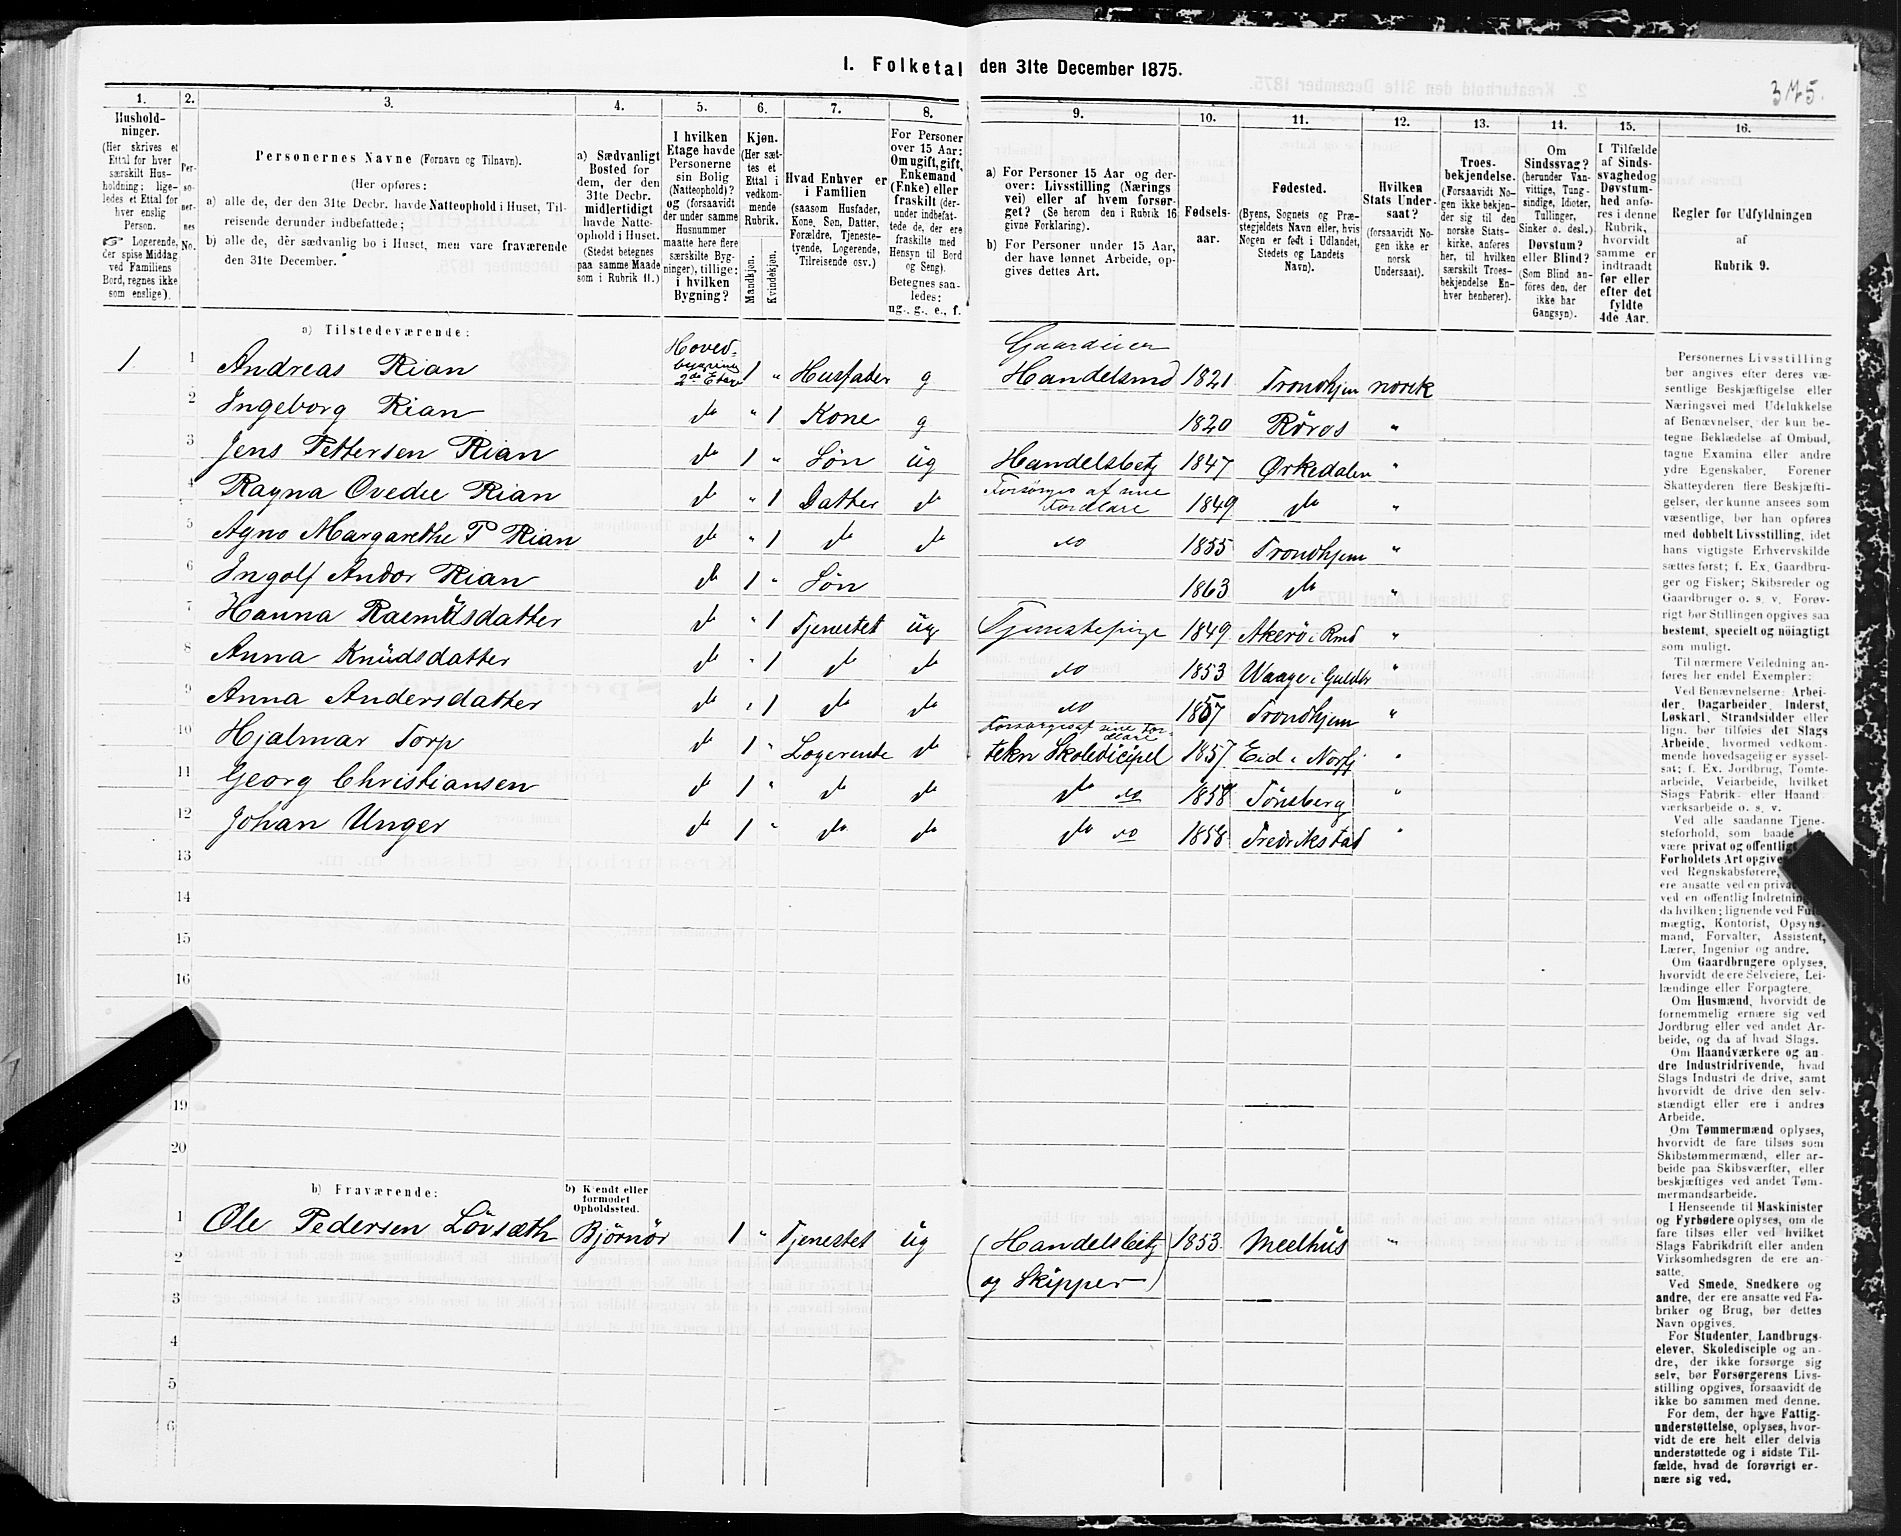 I. Folketal den 31te December 1875.
375.
1. 2. 3. 4. 5. 6. 7. 8. 9. 10. 11. 12. 13. 14. 15. 16.
Hushold-
ninger.
(Her skrives et
Ettal for hver
særskilt Hus-
holdning; lige-
ledes et Ettal for
hver enslig
Person.
☞ Logerende,
der spise Middag
ved Familiens
Bord, regnes ikke
som enslige).
Per-
so-
ner-
nes
No.
Personernes Navne (Fornavn og Tilnavn).
(Her opføres:
a) alle de, der den 31te Decbr. havde Natteophold i Huset, Til-
reisende derunder indbefattede;
b) alle de, der sædvanlig bo i Huset, men vare fraværende
den 31te December.
a) Sædvanligt
Bosted for
dem, der den
31te Decbr.
midlertidigt
havde Natte-
ophold i Huset.
(Stedet betegnes
paa samme Maade
som i Rubrik 11.)
I hvilken
Etage havde
Personerne
sin Bolig
(Natteophold)?
og (forsaavidt
der under samme
Husnummer
maatte høre flere
særskilte Byg-
ninger), tillige:
i hvilken
Bygning?
Kjøn.
(Her sæt-
tes et
Ettal i
vedkom-
mende
Rubrik.
Mandkjøn.
Kvindekjøn.
Hvad Enhver er
i Familien
(saasom Husfader,
Kone, Søn, Datter,
Forældre, Tjeneste-
tyende, Logerende,
Tilreisende osv.)
For Personer
over 15 Aar:
Om ugift, gift,
Enkemand
(Enke) eller
fraskilt (der-
under indbefat-
tede de, der ere
fraskilte med
Hensyn til Bord
og Seng).
Betegnes saa-
ledes:
ug., g., e., f.
a) For Personer 15 Aar og der-
over: Livsstilling (Nærings
vei) eller af hvem forsør-
get? (Se herom den i Rubrik 16
givne Forklaring).
b) For Personer under 15 Aar,
der have lønnet Arbeide, op-
gives dettes Art.
Fødsels-
aar.
Fødested.
(Byens, Sognets og Præ-
stegjeldets Navn eller, hvis
Nogen er født i Udlandet,
Stedets og Landets
Navn).
Hvilken
Stats Under-
saat?
(forsaavidt No-
gen ikke er
norsk
Undersaat).
Troes-
bekjendelse.
(Forsaavidt No-
gen ikke bekjen-
der sig til den
norske Stats-
kirke, anføres
her, til hvilken
særskilt Troes-
bekjendelse En-
hver henhører).
Om
Sindssvag?
(herunder Van-
vittige, Tung-
sindige, Idioter,
Tullinger,
Sinker o. desl.)
Døvstum?
eller Blind?
(Som Blind an-
føres den, der
ikke har
Gangsyn).
I Tilfælde
af Sinds-
svaghed og
Døvstum-
hed anfø-
res i denne
Rubrik,
hvorvidt
samme er
indtraadt
før eller
efter det
fyldte
4de Aar.
Regler for Udfyldningen
af
Rubrik 9.
a) Tilstedeværende:
1 1 Andreas Rian Hoved-bygning 2de Etage 1 " Husfader g Gaardeier Handelsmd 1821 Trondhjem norsk
2 Ingeborg Rian do " 1 Kone g 1820 Røros "
3 Jens Pettersen Rian do 1 " Søn ug Handelsbetj 1847 Ørkedalen "
4 Ragna Ovedie Rian do " 1 Datter do Forsørges af sine Forældre 1849 do "
5 Agno Margarethe P Rian do " 1 do do do 1855 Trondhjem "
6 Ingolf Andor Rian do 1 " Søn 1863 do "
7 Hanna Rasmusdatter do " 1 Tjenestet ug Tjenestepige 1849 Akerø i Rmd "
8 Anna Knudsdatter do " 1 do do do 1853 Waage i Guldbr "
9 Anna Andersdatter do " 1 do do do 1857 Trondhjem "
10 Hjalmar Torp do 1 " Logerende do Forsørges af sine Forældre tekn Skoledicipel 1857 Eid i Norfj "
11 Georg Christiansen do 1 " do do do do 1858 Tönsberg "
12 Johan Unger do 1 " do do do do 1858 Fredrikstad "
13
14
15
16
19
20
b) Fraværende:
b) Kjendt eller
formodet
Opholdssted.
1 Ole Pedersen Lövsæth Björnör 1 " Tjenestet ug (Handelsbetj 1853 Meelhus "
2 og Skipper)
3
4
5
6
Personernes Livsstilling
bør angives efter deres væ-
sentlige Beskjæftigelse eller
Næringsvei med Udelukkelse
af Benævnelser, der kun be-
tegne Beklædelse af Ombud,
tagne Examina eller andre
ydre Egenskaber. Forener
Skatteyderen flere Beskjæfti-
gelser, der kunne ansees som
væsentlige, bør han opføres
med dobbelt Livsstilling, idet
hans vigtigste Erhvervskilde
sættes først; f. Ex. Gaardbru-
ger og Fisker; Skibsreder og
Gaardbruger o. s. v. Forøv-
rigt bør Stillingen opgives saa
bestemt, specielt og nöiagtigt
som muligt.
Til nærmere Veiledning an-
føres her endel Exempler:
Ved Benævnelserne: Arbei-
der, Dagarbeider, Inderst,
Løskarl, Strandsidder eller
lign. bør tilføies det Slags
Arbeide, hvormed vedkom-
mende hovedsagelig er syssel-
sat; f. Ex. Jordbrug, Tomte-
arbeide, Veiarbeide, hvilket
Slags Fabrik- eller Haand-
værksarbeide o. s. v.
Ved alle saadanne Tjene-
steforhold, som baade
være privat og offentlig
Forholdets Art opgives
ved Regnskabsførere,
ere ansatte ved en privat
ved en offentlig Indretning
da hvilken; lignende ved Fuld-
mægtig, Kontorist, Opsyns-
mand, Forvalter, Assistent,
Lærer, Ingeniør og andre.
Om Gaardbrugere oplyses,
hvorvidt de ere Selveiere, Lei-
lændinge eller Forpagtere.
Om Husmænd, hvorvidt de
fornemmelig ernære sig ved
Jordbrug eller ved andet Ar-
beide, og da af hvad Slags.
Om Haandværkere og an-
dre Industridrivende, hvad
Slags Industri de drive, samt
hvorvidt de drive den selv-
stændigt eller ere i andres
Arbeide.
Om Tømmermænd oplyses,
hvorvidt de fare tilsøs som
Skibstømmermænd, eller ar-
beide paa Skibsværfter, eller
beskjæftiges ved andet Tøm-
mermandsarbeide.
I Henseende til Maskinister
og Fyrbødere oplyses, om de
fare tilsøs eller ved hvilket
Slags Fabrikdrift eller anden
Virksomhedsgren de ere an-
satte.
Ved Smede, Snedkere og
andre, der ere ansatte ved Fa-
briker og Brug, bør dettes
Navn opgives.
For Studenter, Landbrugs-
elever, Skoledisciple og an-
dre, der ikke forsørge sig
selv, bør Forsørgerens Livs-
stilling opgives, forsaavidt de
ikke bo sammen med denne.
For dem, der have Fattig-
understøttelse, oplyses, hvor-
vidt de ere helt eller delvis
understøttede og i sidste Til-
fælde, hvad de forøvrigt er-
nære sig ved.